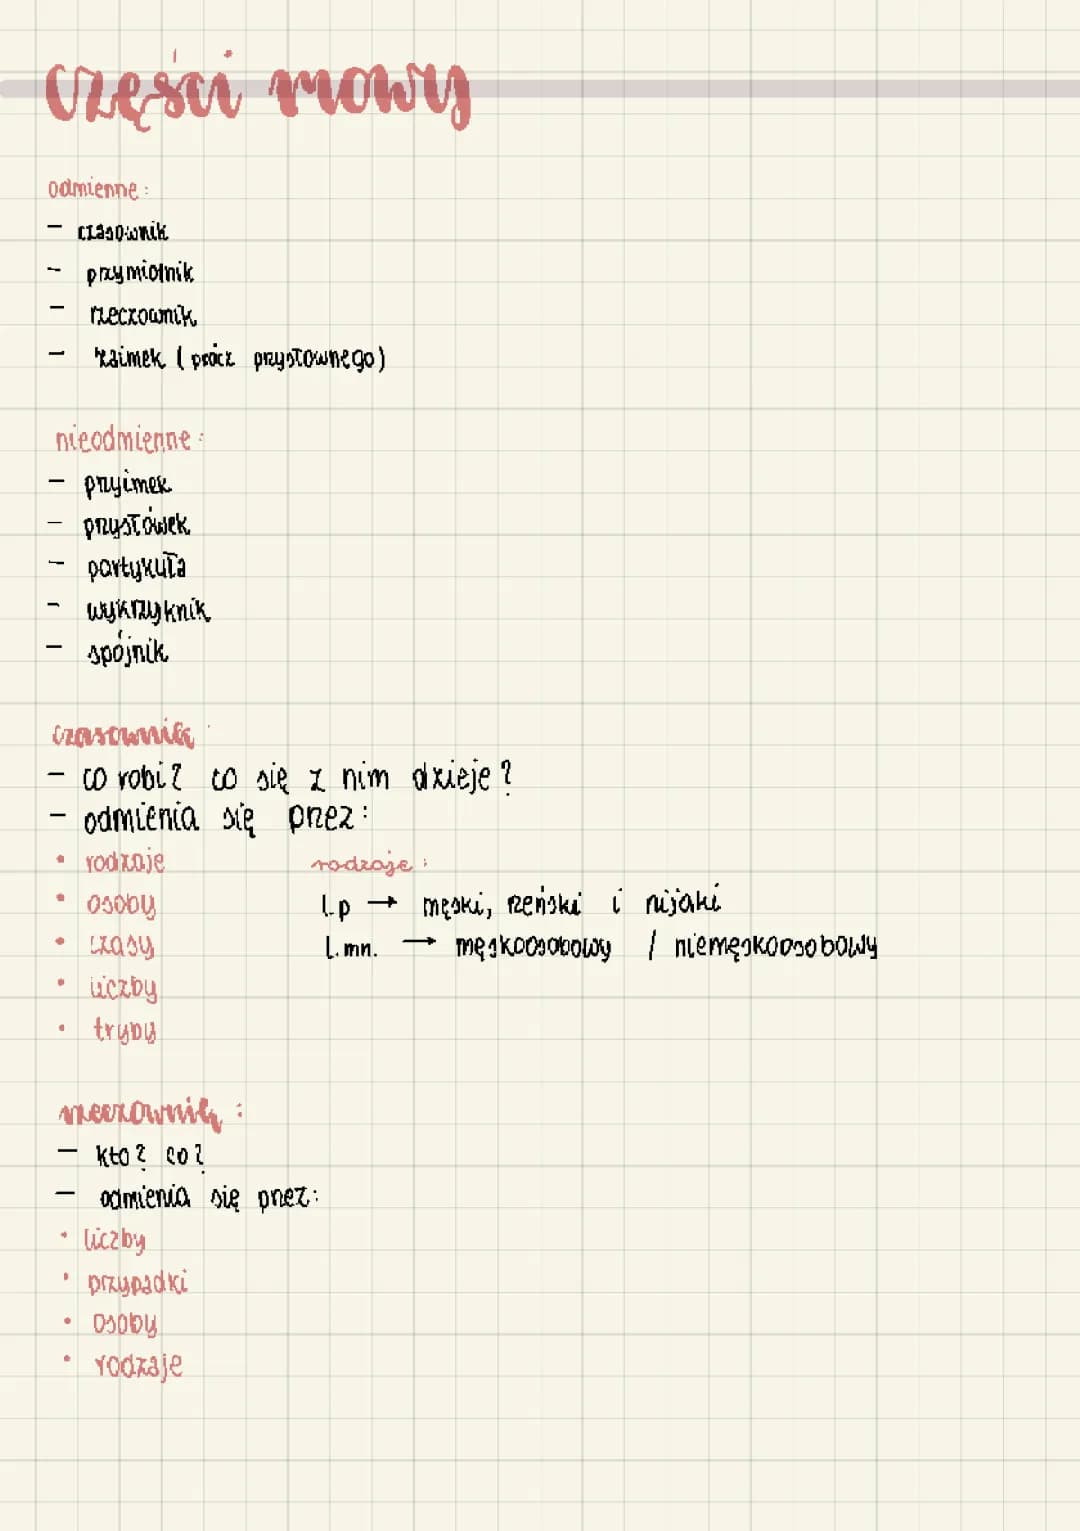 części mowy
odmienne:
- czasownik
- przymiotnik
- rzeczownik
- zaimek (prócz przysłownego)
nieodmienne:
- przyimek
- przysłówek
- partykuła
- wykrzyknik
- spójnik
czasownik:
- co robi? co się z nim dzieje?
- odmienia się przez:
• rodzaje
• osoby
• czasy
• liczby
• tryby
rodzaje:
l.p → męski, żeński i nijaki
l.mn. → męskoosobowy / niemęskoosobowy
rzeczownik:
- kto? co?
- odmienia się przez:
• liczby
• przypadki
• osoby
• rodzaje